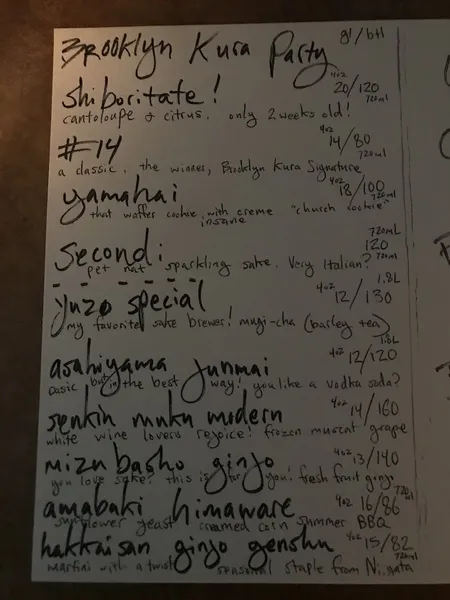 Brooklyn Kura Party gl/btl
shiboritate! 4oz 20/120 720ml
cantoloupe & citrus. only 2 weeks old!
#14 4oz 14/80 720ml
a classic. the winner, Brooklyn Kura Signature
yamahai 4oz 18/100 720ml
that waffer cookie with creme "church cookie"
insane
Secondi 720mL 120
pet nat sparkling sake. Very Italian? 720ml
yuzo special 4oz 12/130 1.8L
my favorite sake brewer! mugi-cha (barley tea)
asahiyama junmai 4oz 12/120 1.8L
basic but in the best way! you like a vodka soda?
senkin muku modern 4oz 14/160
white wine lovers rejoice! frozen muscat grape
mizubasho ginjo 4oz 13/140
you love sake? this is for you! fresh fruit ginjo
amabaki himaware 4oz 16/86 720ml
sunflower yeast creamed corn summer BBQ
hakkaisan ginjo genshu 4oz 15/82 720ml
martini with a twist seasonal staple from Niigata